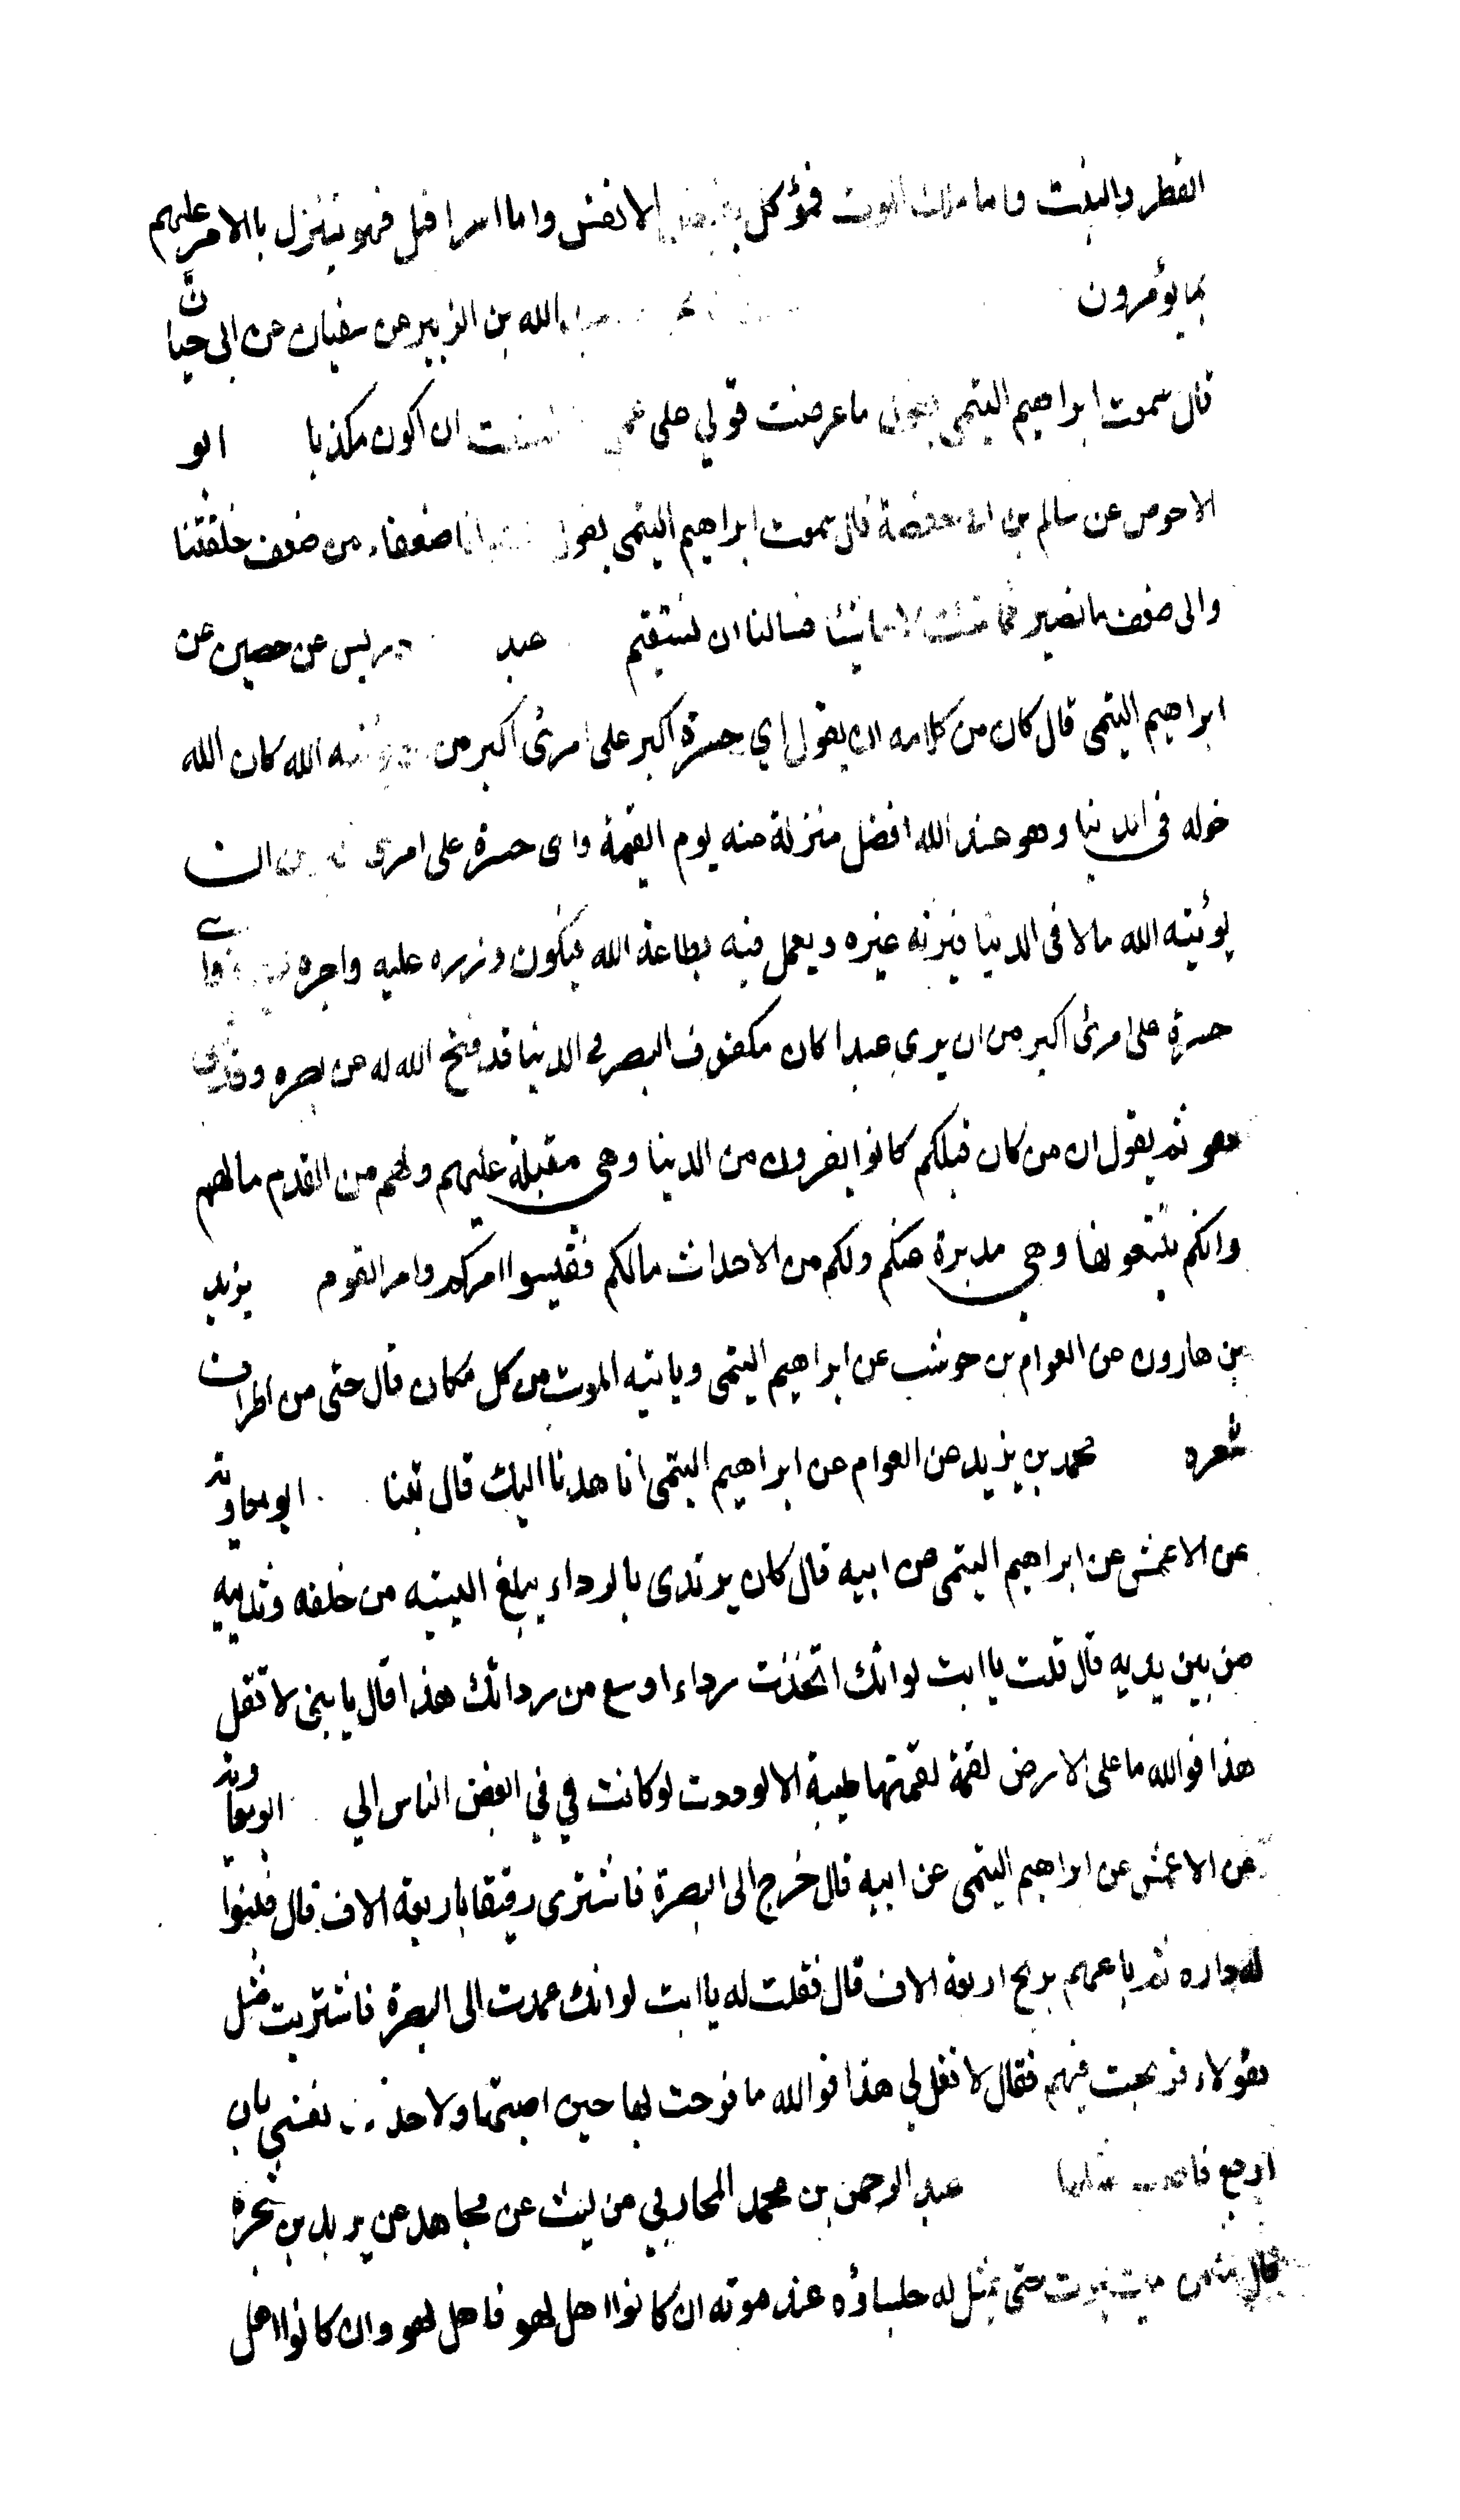 القطر والنبت واما ملك الموت فموكل بقبض الانفس واما اسرافيل فهو يتنزل بالامر عليهم
بما يؤمرون الله بن الزبير عن سفيان عن ابي حيان
قال سمعت ابراهيم التيمي يقول ما عرضت قولي على عملي ان اكون مكذبا ابو
الاحوص عن سالم بن ابي حفصة قال سمعت ابراهيم التيمي يقول انا ضعفاء من ضعف خلقتنا
والى ضعف ما نصير فما شئت لا ما نشا فسالنا ان نستقيم عبد دريس عن حصين عن
ابراهيم التيمي قال كان من كلامه ان يقول اي حسرة اكبر على امرئ اكبر من الله كان الله
خوله في الدنيا وهو عند الله افضل منزلة منه يوم القيمة واى حسرة على امرئ من ان
يؤتيه الله مالا في الدنيا فيرثه غيره ويعمل فيه بطاعة الله فيكون وزره عليه واجره واي
حسرة على امرئ اكبر من ان يرى عبدا كان مكفوف البصر في الدنيا قد فتح الله له عن بصره وقد عمى
هو ثم يقول ان من كان قبلكم كانوا يفرون من الدنيا وهى مقبلة عليهم ولهم من القدم ما لهم
وانكم تتبعونها وهى مدبرة عنكم ولكم من الاحداث مالكم فقيسوا امركم وامر القوم يزيد
بن هارون عن العوام بن حوشب عن ابراهيم التيمى وياتيه الموت من كل مكان قال حتى من اطراف
شعره محمد بن يزيد عن العوام عن ابراهيم التيمى انا هدنا اليك قال تبنا ابو معاوية
عن الاعمش عن ابراهيم التيمى عن ابيه قال كان يرتدى بالرداء يبلغ اليتيه من خلفه وثدييه
من بين يديه قال قلت يا ابت لو انك اتخذت رداء اوسع من ردائك هذا قال يا بنى لا تقل
هذا فوالله ما على الارض لقمة لقمتها طيبة الا لوددت لو كانت في في ابغض الناس الي ابو معاوية
عن الاعمش عن ابراهيم التيمى عن ابيه قال خرج الى البصرة فاشترى رقيقا باربعة الاف قال فبنوا
له داره ثم باعهم بربح اربعة الاف قال فقلت له يا ابت لو انك عمدت الى البصرة فاشتريت مثل
هؤلاء فربحت فيهم فقال لا تقل لي هذا فوالله ما فرحت بها حين اصبتها ولا نفسي بان
ارجع فاصيب مثلها عبد الرحمن بن محمد المحاربي عن ليث عن مجاهد عن يزيد بن شجرة
قال ما من ميت يموت حتى يمثل له جلساؤه عند موته ان كانوا اهل لهو فاهل لهو وان كانوا اهل